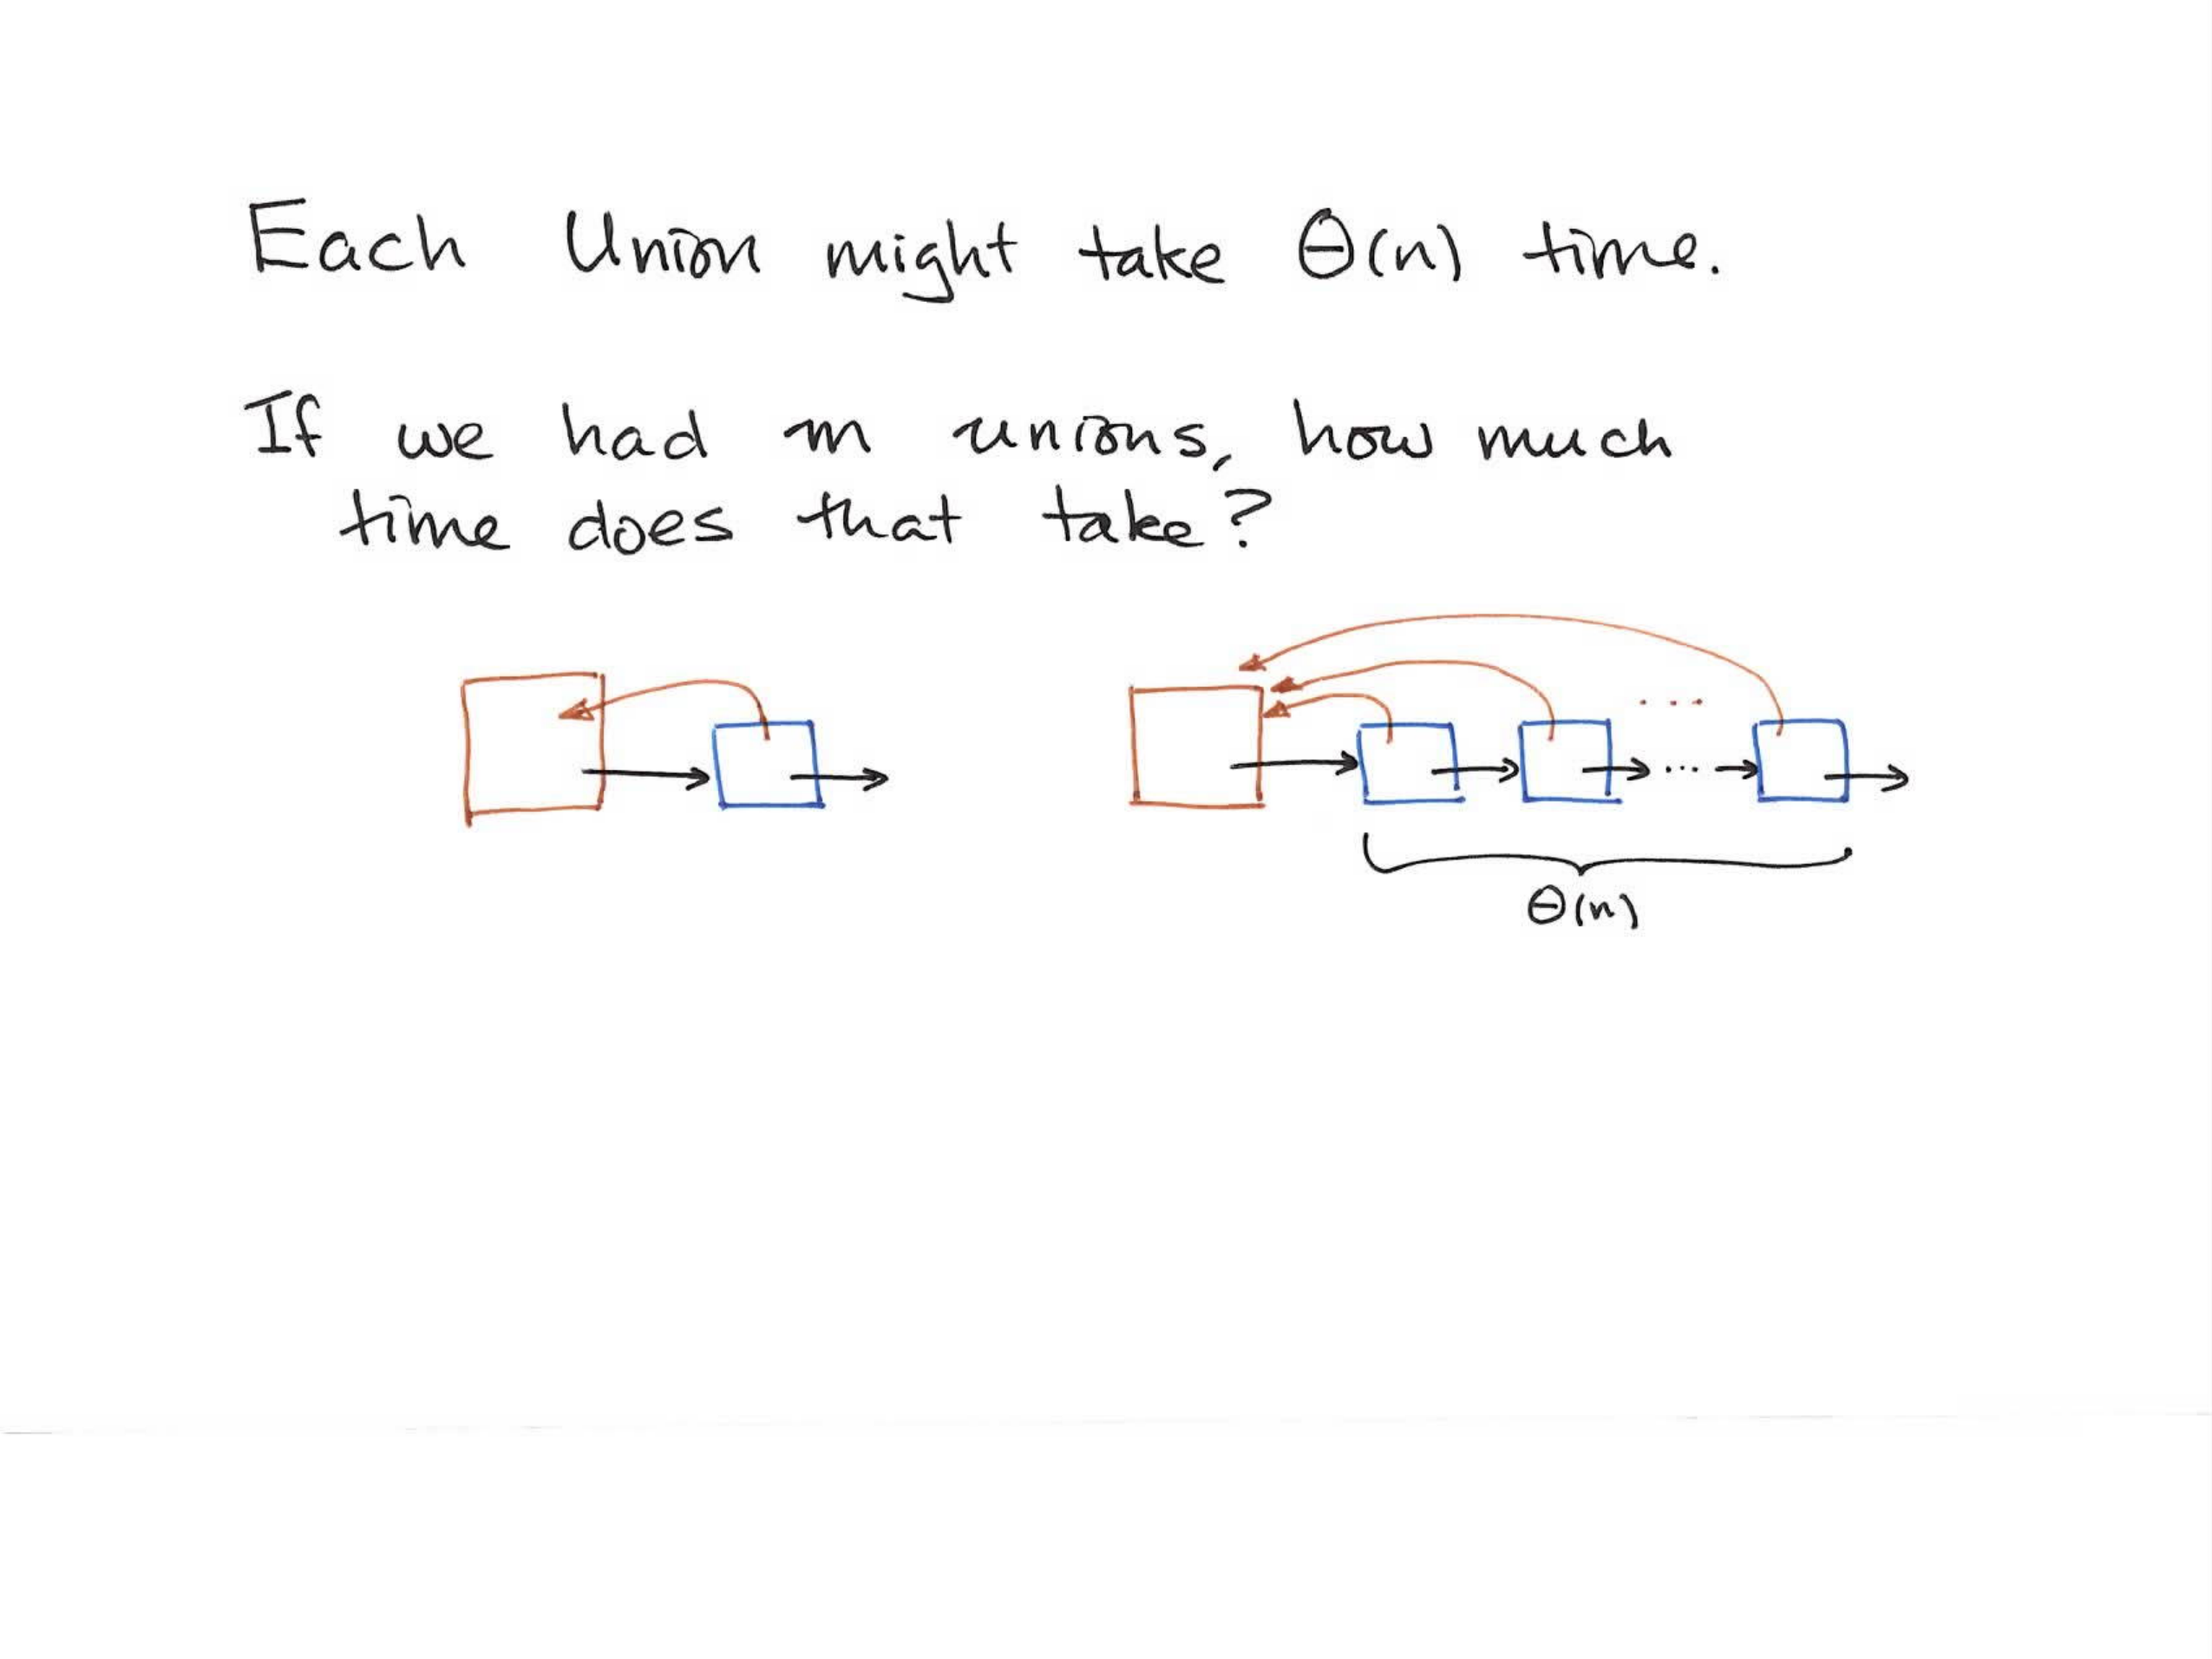 Each Union might take Θ(n) time.
If we had m unions, how much
time does that take?
...
...
Θ(n)